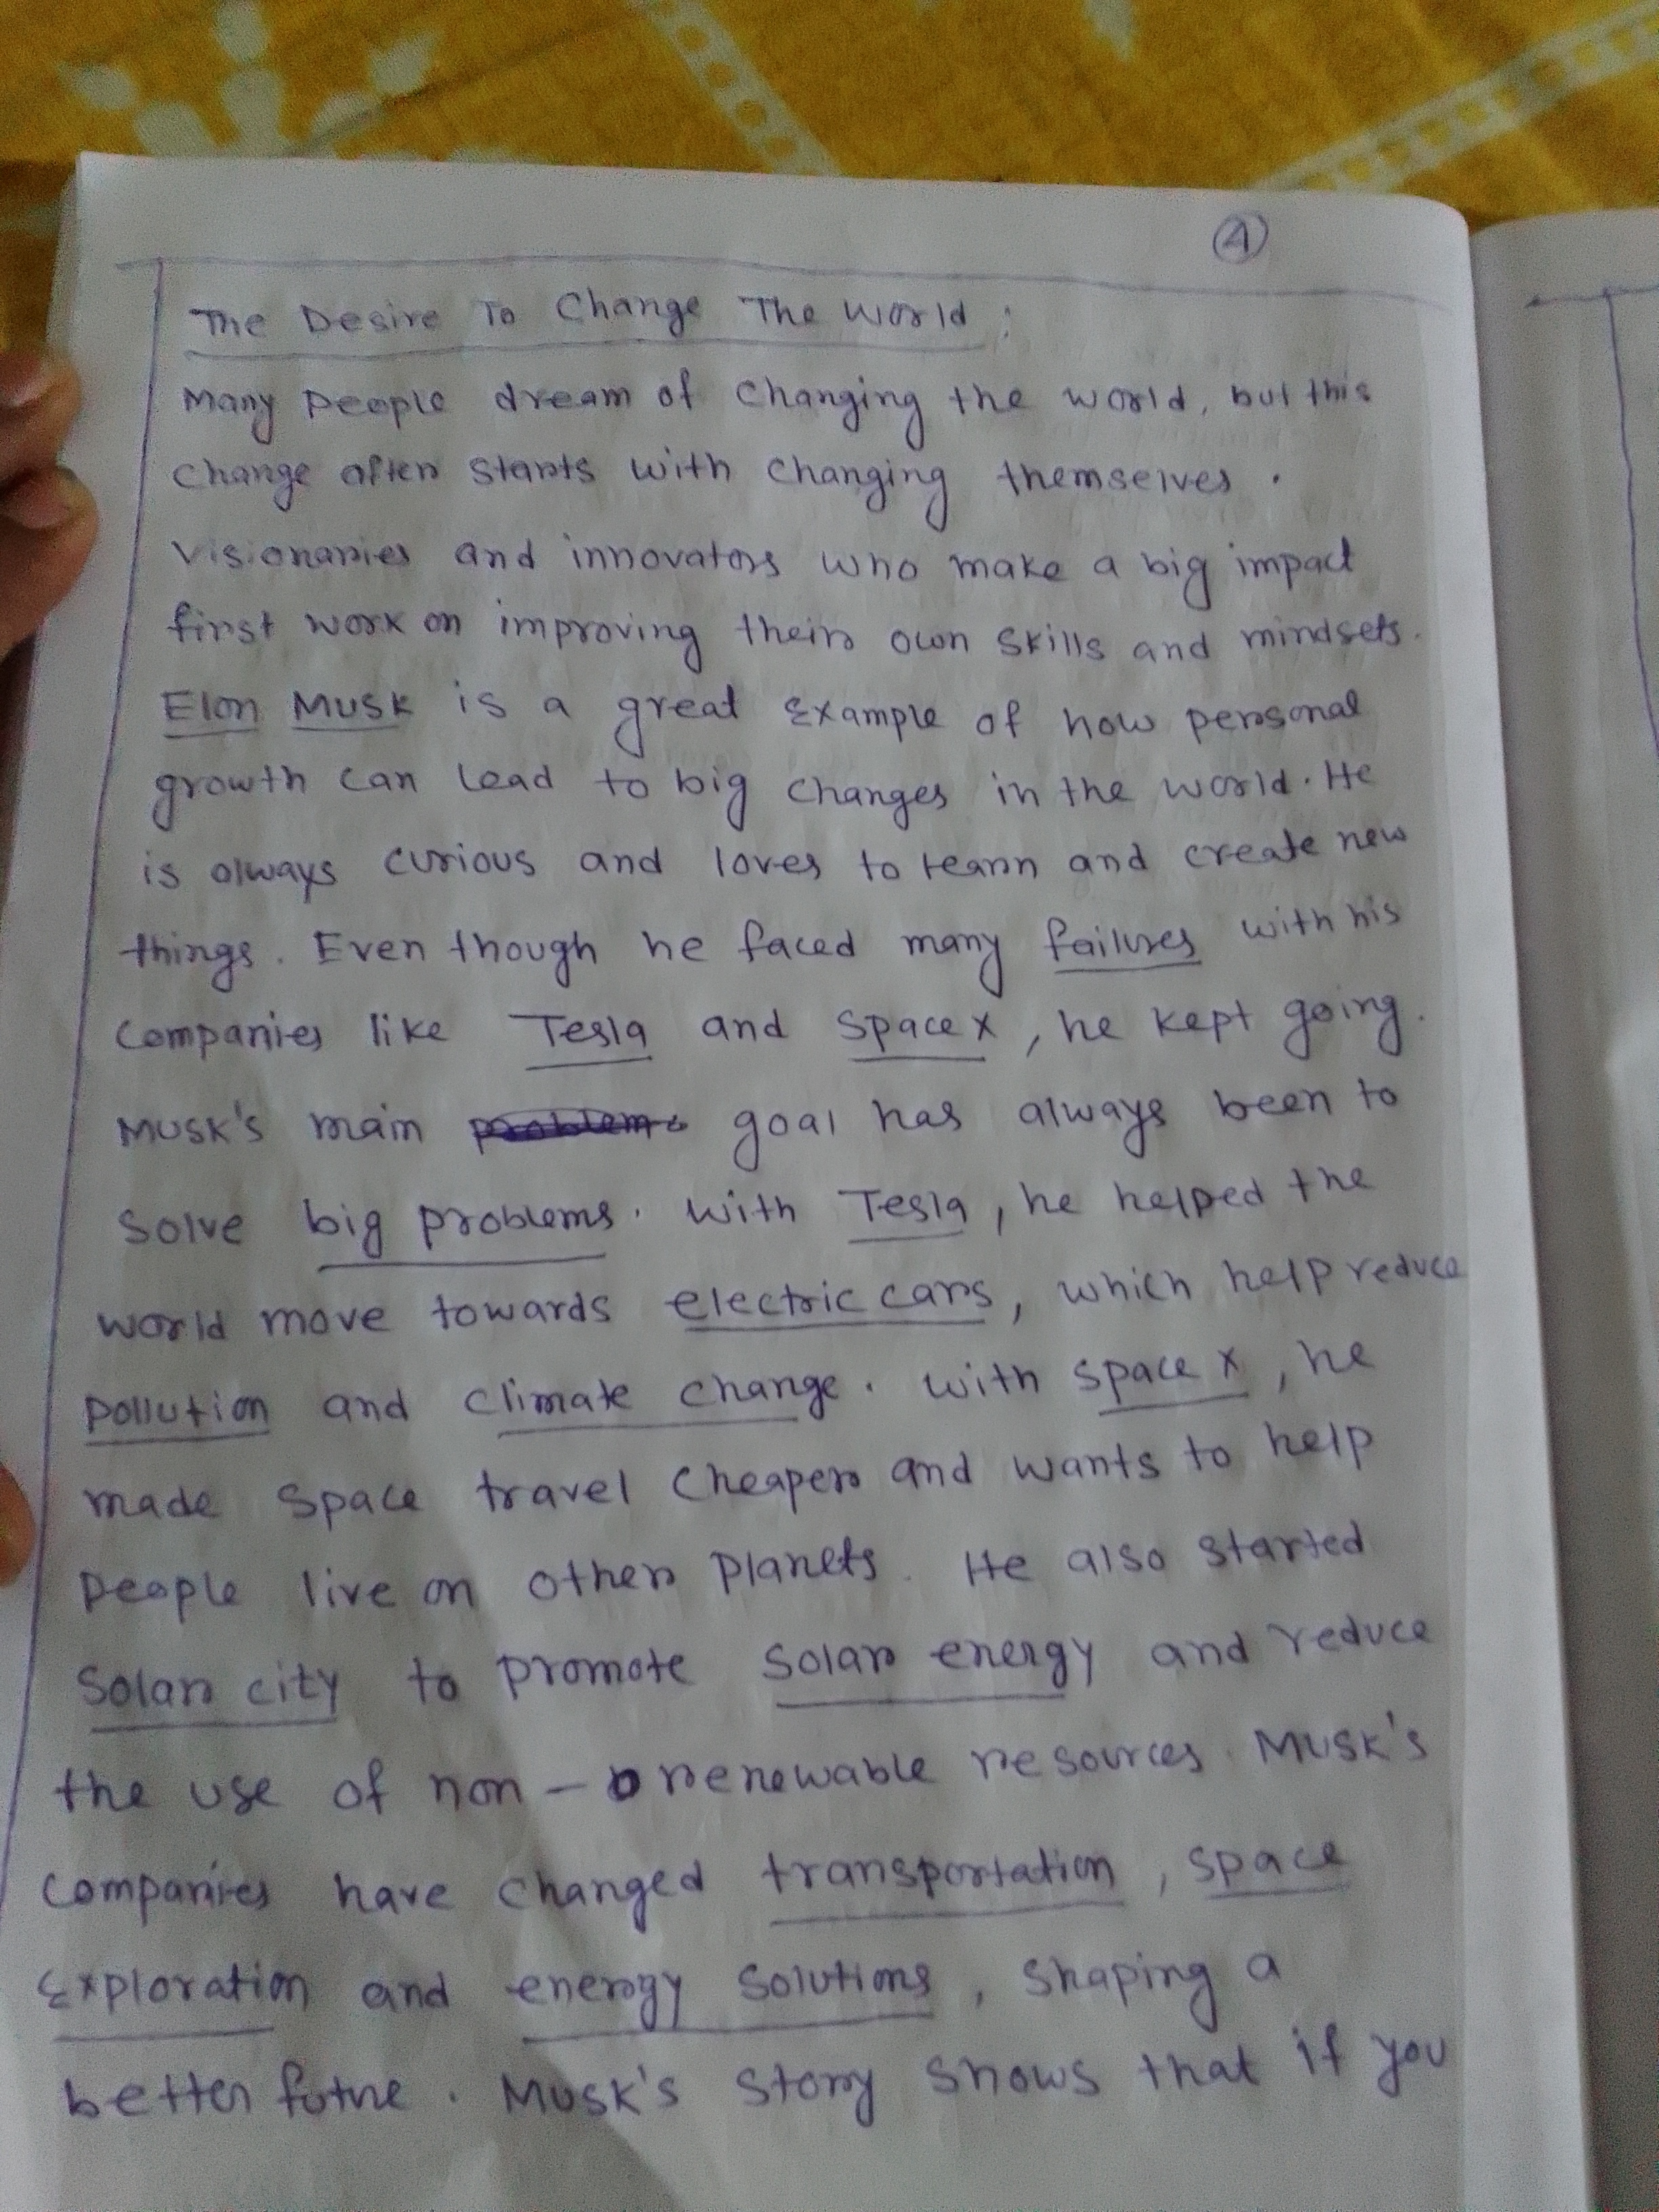 4
The Desire To Change The World :
Many People dream of Changing the world, but this
Change often starts with Changing themselves .
Visionaries and innovators who make a big impact
first work on improving their own skills and mindsets.
Elon Musk is a great Example of how personal
growth can lead to big changes in the world. He
is always curious and loves to learn and create new
things. Even though he faced many failures with his
Companies like Tesla and Space X, he kept going.
Musk's main goal has always been to
Solve big problems. With Tesla, he helped the
world move towards electric cars, which help reduce
pollution and climate change. With Space X, he
made Space travel Cheaper and wants to help
People live on other Planets. He also started
Solar city to promote Solar energy and reduce
the use of non - renewable resources. Musk's
Companies have changed transportation, Space
Exploration and energy Solutions, Shaping a
better future. Musk's Story Shows that if you